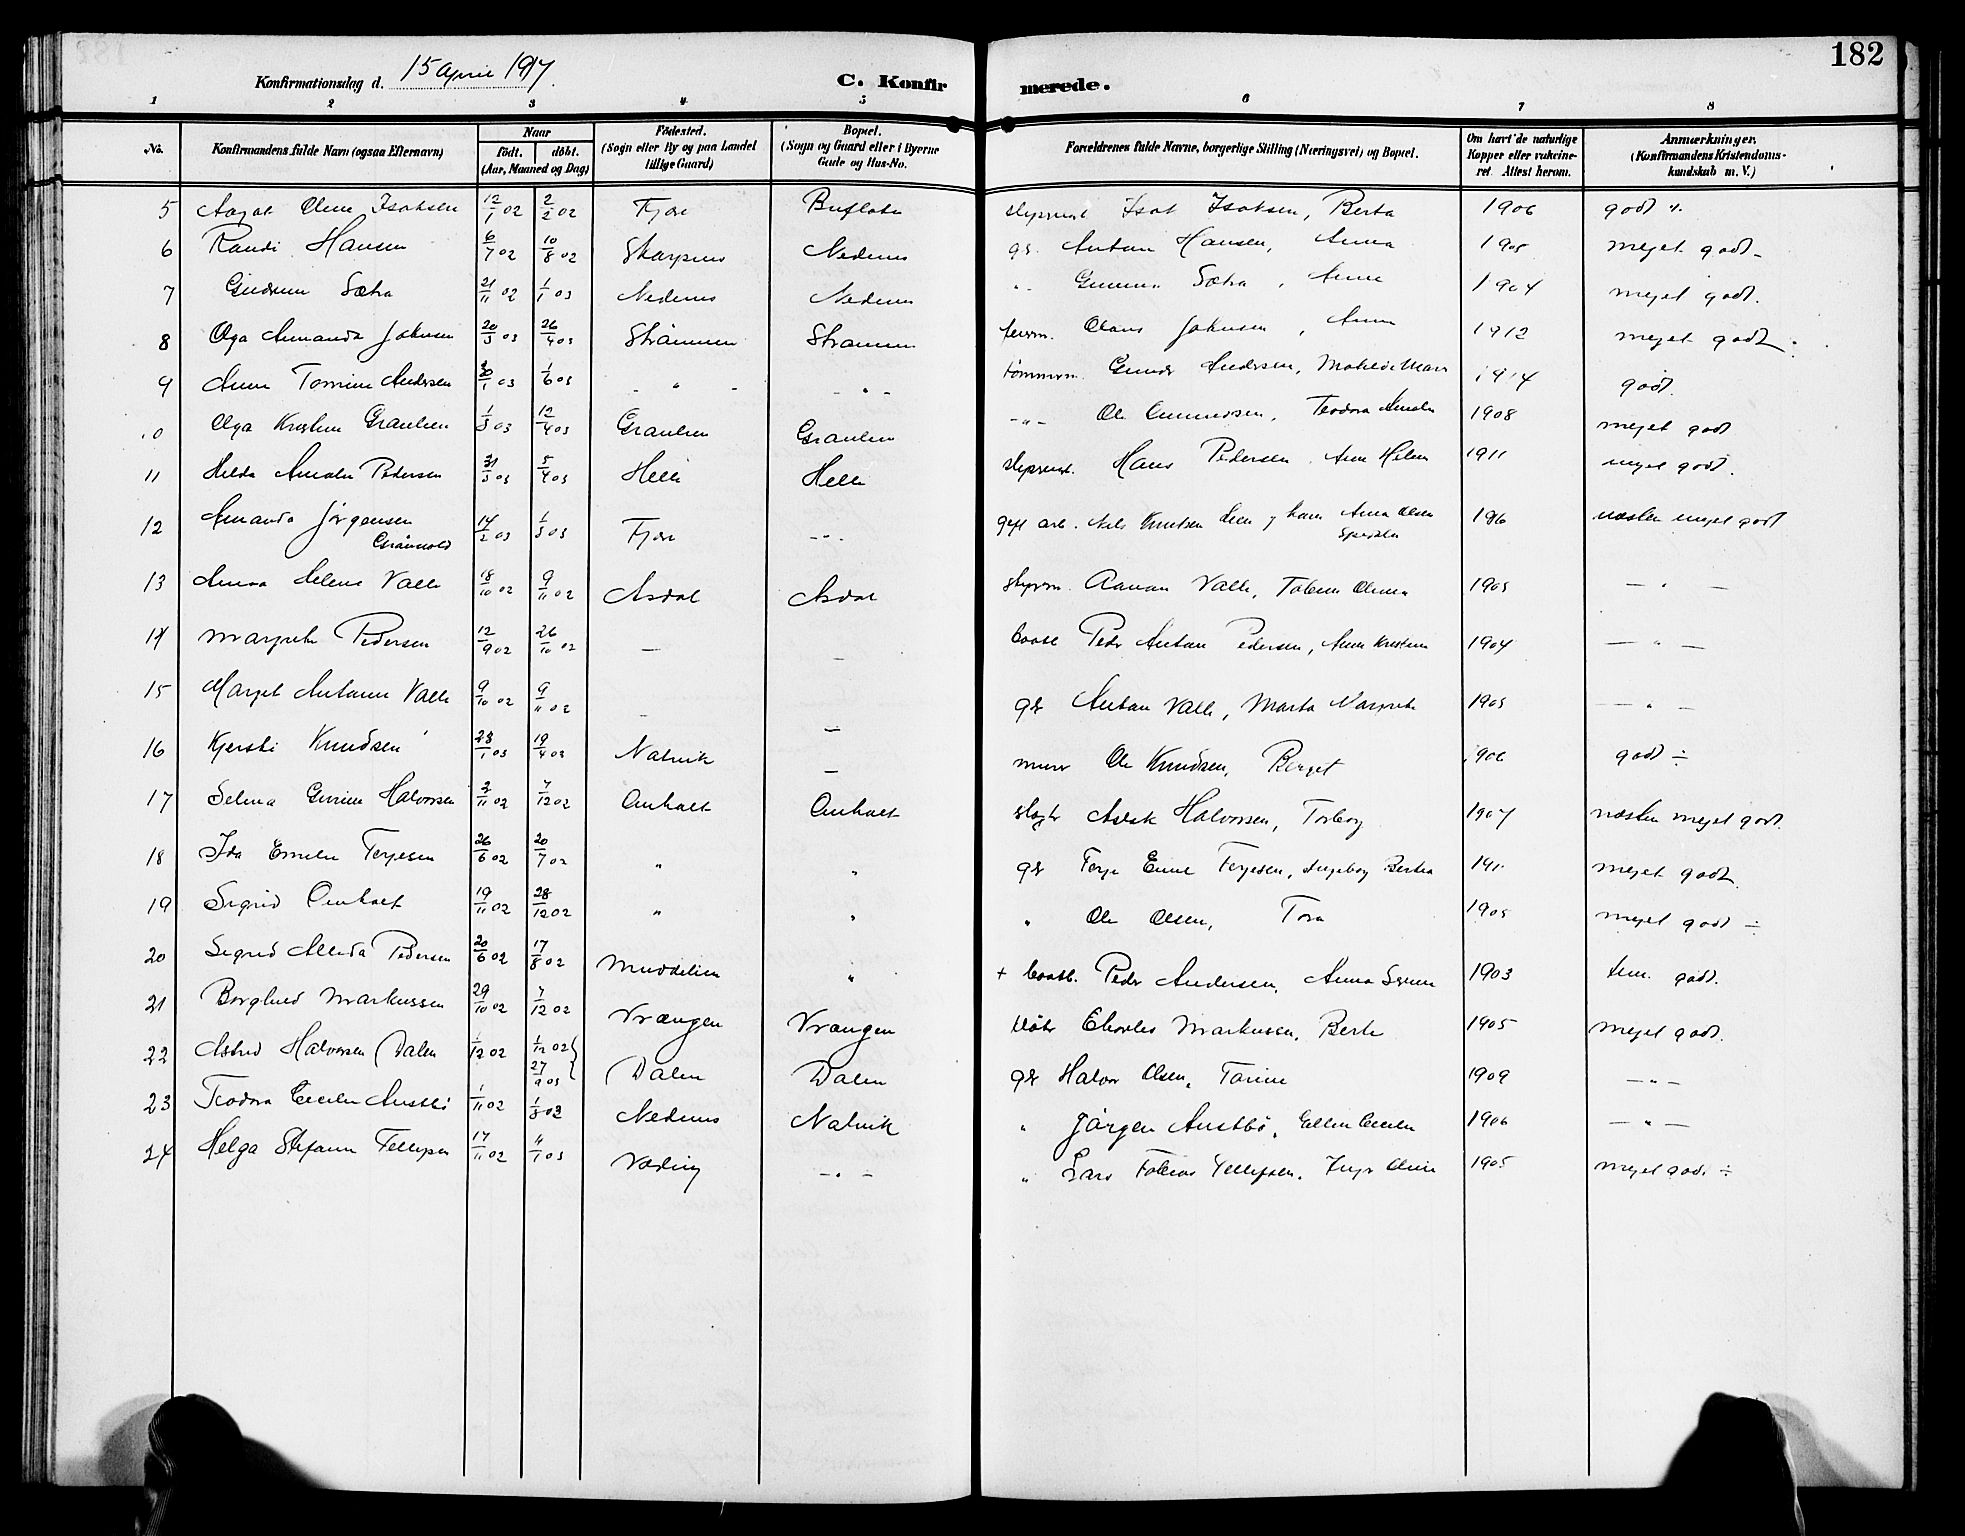 182
Konfirmationsdag d. 15 April 1917.
C. Konfirmerede.
1 2 3 4 5 6 7 8
No. Konfirmandens fulde Navn (ogsaa Efternavn) Naar født. døbt. (Aar, Maaned og Dag) Fødested. (Sogn eller By og paa Landet tillige Gaard) Bopæl. (Sogn og Gaard eller i Byerne Gade og Hus-No. Forældrenes fulde Navne, borgerlige Stilling (Næringsvei) og Bopæl. Om havt de naturlige Kopper eller vakcineret. Attest herom. Anmærkninger. (Konfirmandens Kristendomskundskab m. V.)
5 Aagot Oline Isaksen 12/1 02 2/2 02 Fjære Buflaten Isak Isaksen, Berta 1906 godt
6 Randi Hansen 6/7 02 10/8 02 Skarpnes Nedenes gr. Anton Hansen, Anna 1905 meget godt -
7 Gudrun Sætra 21/11 02 1/1 03 Nedenes Nedenes " Gunnar Sætra, Anne 1904 meget godt.
8 Olga Amanda Johnsen 20/3 03 26/4 03 Strømmen Strømmen Olaus Johnsen, Anne 1912 meget godt
9 Anne Tomine Andersen 30/1 03 1/6 03 - " - - " - tømmerm. Gunder Andersen, Matilde Marie 1914 godt.
10 Olga Kristine Graulien 1/3 03 12/4 03 Graulien Graulien - " - Ole Gunnersen, Teodora Amalie 1908 meget godt
11 Hilda Amalie Pedersen 31/3 03 5/4 03 Helle Helle Hans Pedersen, Anne Helene 1911 meget godt.
12 Amanda Jørgensen Grønvold 14/2 03 1/3 03 Fjære - " - gift arb. Nils Knutsen Anna Olsen 1916 næsten meget godt
13 Anna Helene Valle 18/10 02 9/11 02 Asdal Asdal styrm. Aanon Valle, 1903 — " —
14 Margrete Pedersen 12/9 02 26/10 02 — — baase Peder Anton Pedersen, Anne Kristine 1904 — " —
15 Marget Antonie Valle 9/10 02 9/11 02 — — gr Anton Valle, Marta Margrete 1903 — " —
16 Kjersti Knudsen 23/1 03 19/4 03 Natvik — murer Ole Knudsen, Berget 1906 godt ÷
17 Selma Gurine Halvorsen 2/11 02 7/12 02 Omholt Omholt Aslak Halvorsen, Torborg 1907 næsten meget godt.
18 Ida Emelie Terjesen 26/6 02 20/7 02 " " gr Terje Emil Terjesen, Ingeborg Bertea 191 meget godt.
19 Sigrid Omholt 19/11 02 28/12 02 " " " Ole Olsen, Tora 1905 meget godt ÷
20 Sigrid Alieda Pedersen 20/6 02 17/8 02 Myrdalien " + baasb. Peder Andersen, Anna Serine 1903 tem. godt.
21 Borghild Markussen 29/10 02 7/12 02 Vrængen Vrængen Charles Markussen, Berte 1905 meget godt.
22 Astrid Halvorsen Dalen 1/12 02 1/12 02 27/9 03 Dalen Dalen gr Halvor Olsen, Torine 1909 — " —
23 Teodora Cecilie Austbø 1/11 02 1/8 03 Nedenes Natvik " Jørgen Austbø, Ellen Cecilie 1906 — " —
24 Helga Stefanie Tellefsen 17/11 02 "/1 03 Væding - " - " Lars Tobias Tellefsen, Inger Oline 1905 meget godt ÷